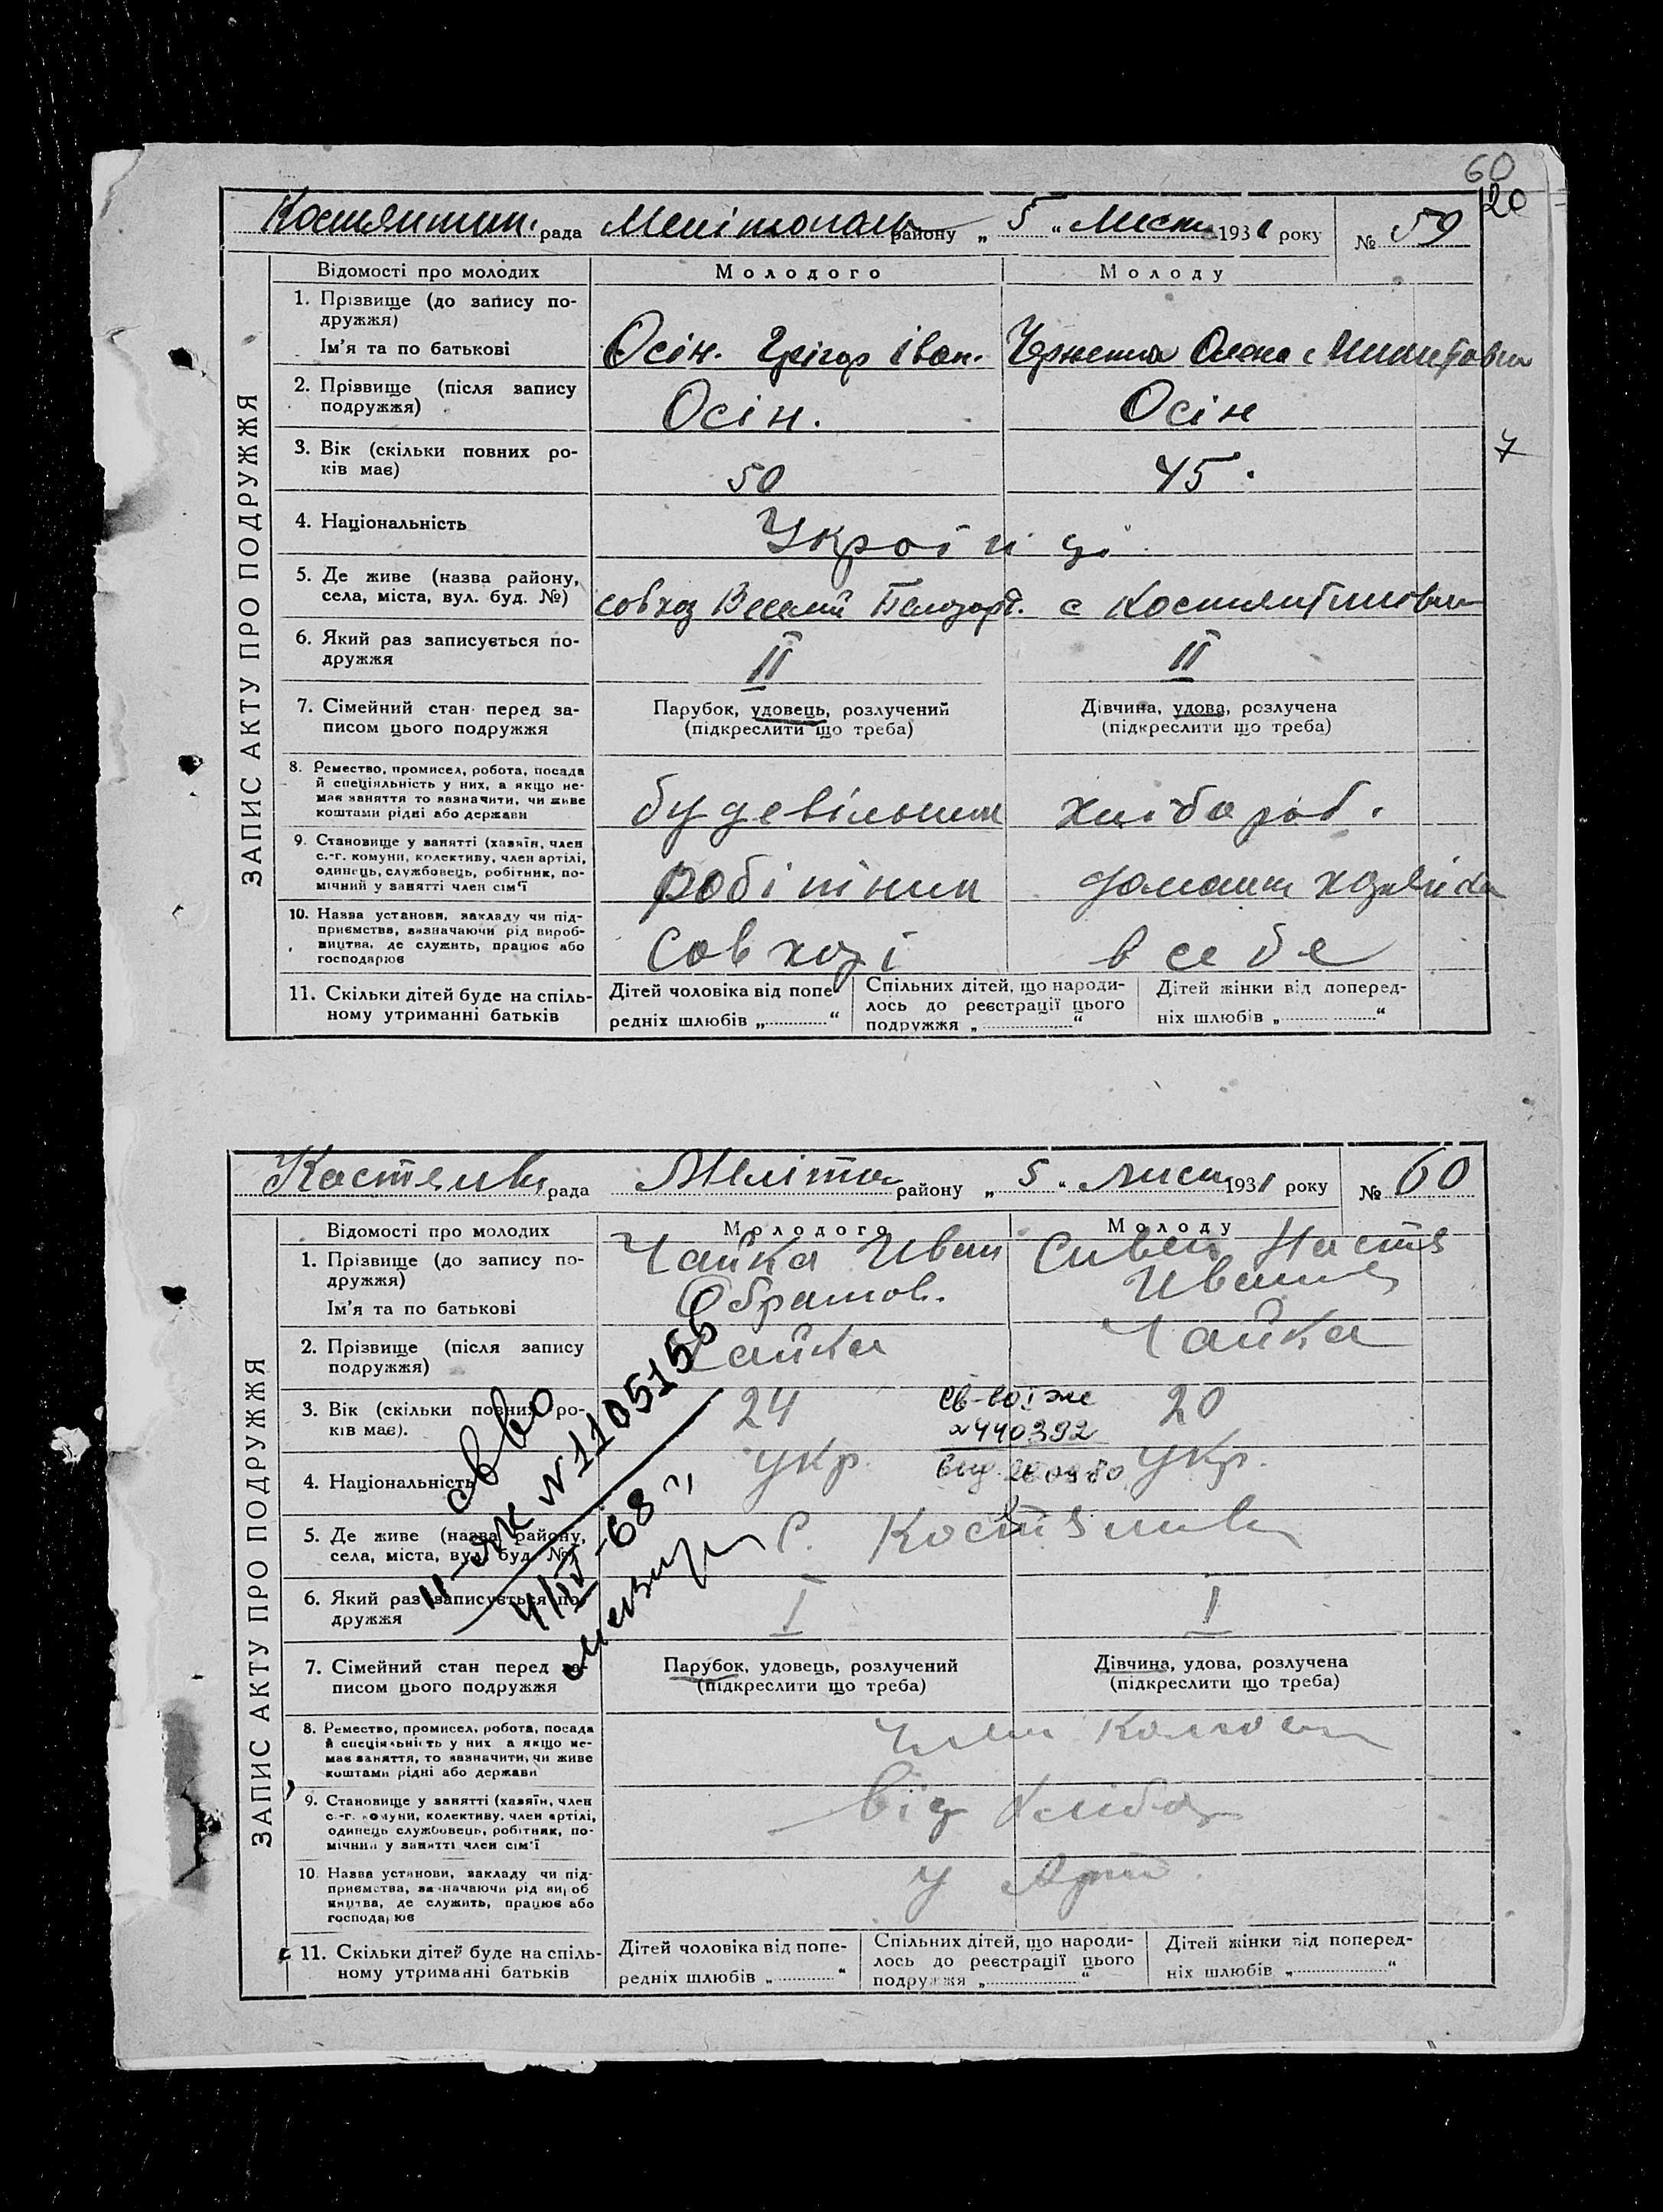 60
120
рада Мелітополь району „ 5 “ Лист 1931 року № 59
Відомості про молодих Молодого Молоду
ЗАПИС АКТУ ПРО ПОДРУЖЖЯ
1. Прізвище (до запису по-
дружжя)
Ім'я та по батькові Осін. Грігор Іван. Олена
2. Прізвище (після запису
подружжя) Осін. Осін
3. Вік (скільки повних ро-
ків має) 50 45.
7
4. Національність Україн ці
5. Де живе (назва району,
села, міста, вул. буд. №) совхоз Веселий с
6. Який раз записується по-
дружжя II II
7. Сімейний стан перед за-
писом цього подружжя
Парубок, удовець, розлучений
(підкреслити що треба)
Дівчина, удова, розлучена
(підкреслити що треба)
8. Ремество, промисел, робота, посада
й спеціяльність у них, а якщо не-
має заняття то вазначити, чи живе
коштами рідні або держави
хлібороб.
9. Становище у занятті (хазяїн, член
с.-г. комуни, колективу, член артілі,
одинець, службовець, робітник, по-
мічний у занятті член сім'ї
робітник домашн хазяйка
10. Назва установи, закладу чи під-
приємства, зазначаючи рід вироб-
ництва, де служить, працює або
господарює
Совхозі в себе
11. Скільки дітей буде на спіль-
ному утриманні батьків
Дітей чоловіка від попе-
редніх шлюбів „ “
Спільних дітей, що народи-
лось до реєстрації цього
подружжя „ “
Дітей жінки від поперед-
ніх шлюбів „ “
рада Меліто району „ 5 “ лист 1931 року № 60
Відомості про молодих Молодого Молоду
ЗАПИС АКТУ ПРО ПОДРУЖЖЯ
1. Прізвище (до запису по-
дружжя)
Ім'я та по батькові
Чайка Иван
Настя
2. Прізвище (після запису
подружжя) Чайка Чайка
3. Вік (скільки повних ро-
ків має). 24 20
св-во
N 440392
4. Національність укр. укр.
св-во
II-ЯК N 1105156
4/IV-68
5. Де живе (назва району,
села, міста, вул. буд. №) с.
6. Який раз записується по-
дружжя I I
7. Сімейний стан перед за-
писом цього подружжя
Парубок, удовець, розлучений
(підкреслити що треба)
Дівчина, удова, розлучена
(підкреслити що треба)
8. Ремество, промисел, робота, посада
й спеціяльність у них а якщо не-
має заняття, то вазначити, чи живе
коштами рідні або держави
9. Становище у занятті (хазяїн, член
с.-г. комуни, колективу, член артілі,
одинець службовець, робітник, по-
мічний у занятті член сім'ї
від
10. Назва установи, закладу чи під-
приємства, зазначаючи рід вироб
ництва, де служить, працює або
господарює
у
11. Скільки дітей буде на спіль-
ному утриманні батьків
Дітей чоловіка від попе-
редніх шлюбів „ “
Спільних дітей, що народи-
лось до реєстрації цього
подружжя „ “
Дітей жінки від поперед-
ніх шлюбів „ “